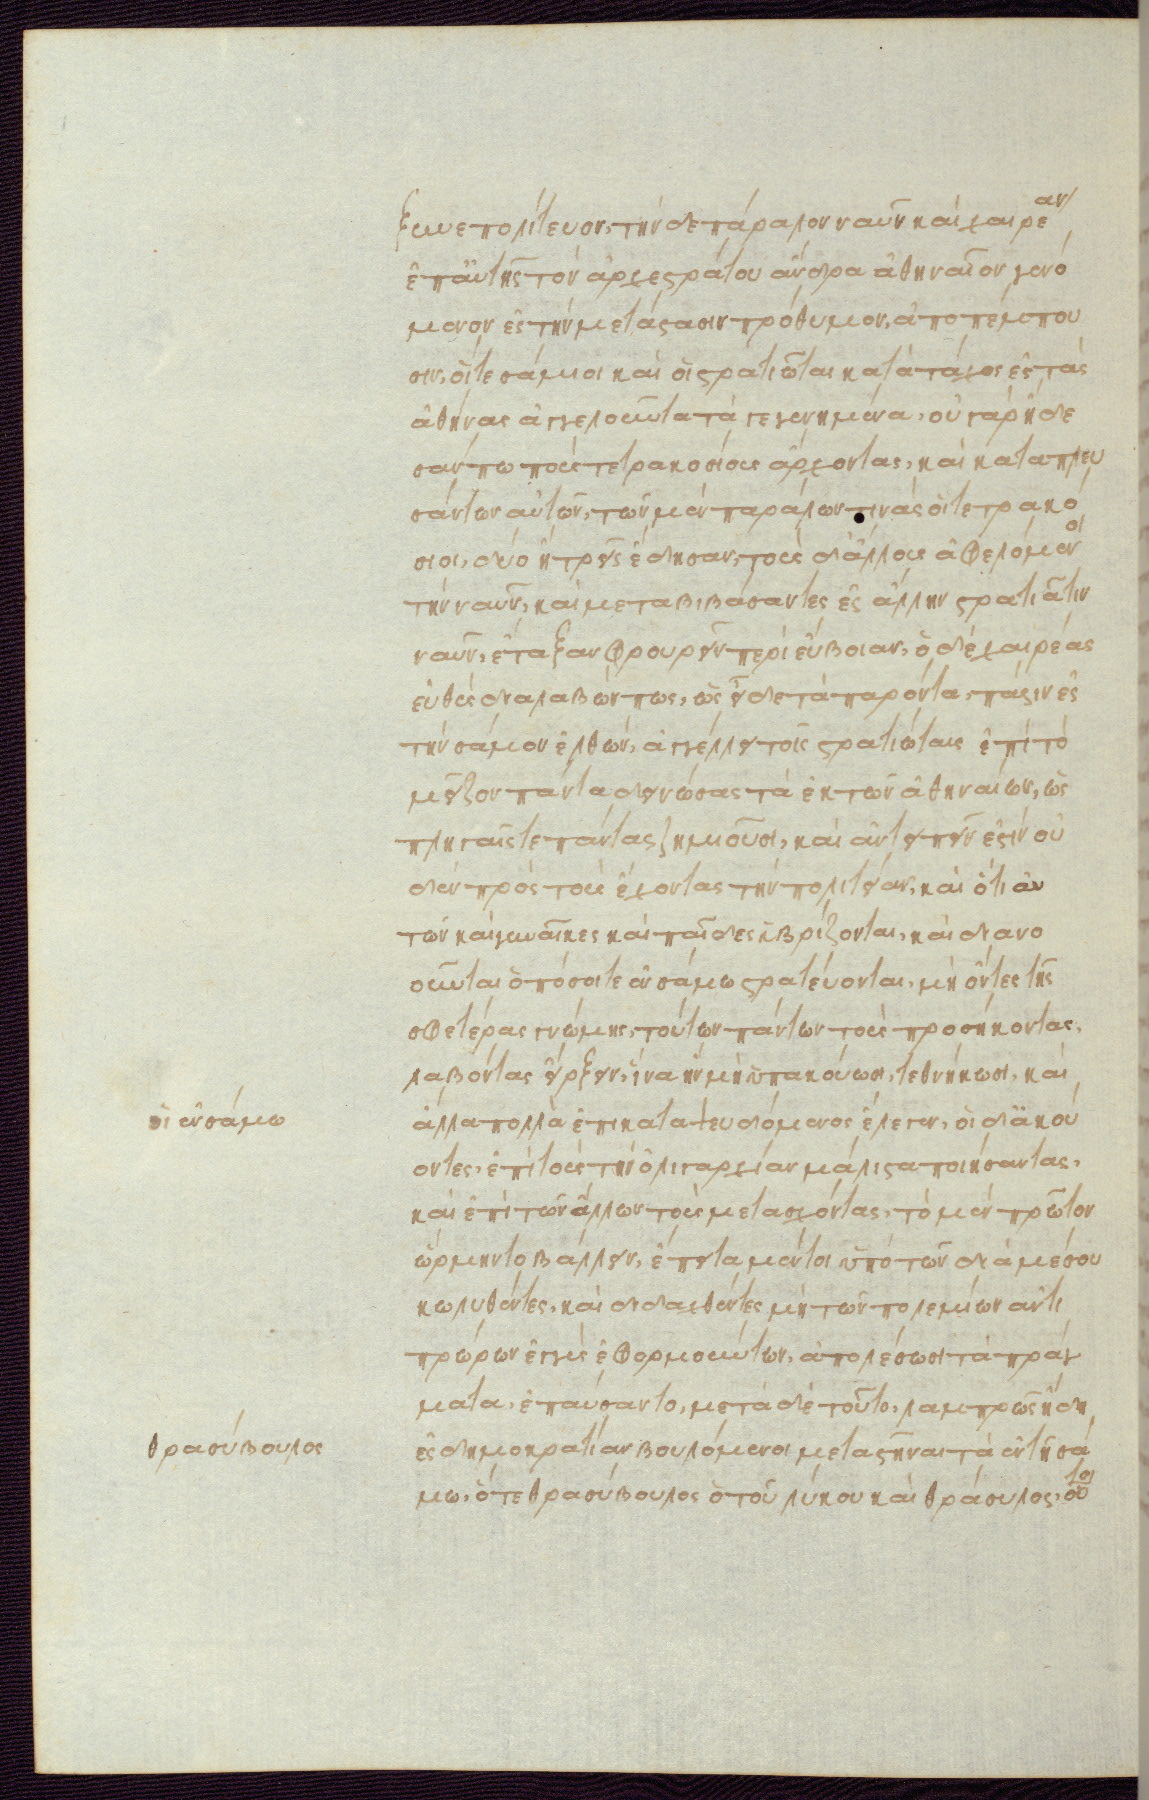 ξυνεπολίτευον, τὴν δὲ πάραλον ναῦν καὶ χαιρέαν
ἐπ' αὐτῆς τὸν ἀρχεστράτου ἄνδρα ἀθηναῖον γενό
μενον ἐς τὴν μετάστασιν πρόθυμον, ἀποπέμπου
σιν, οἵτε σάμιοι καὶ οἱ στρατιῶται κατὰ τάχος ἐς τὰς
ἀθήνας ἀγγελοῦντα τὰ γεγενημένα, οὐ γὰρ ἤδε
σάν πω τοὺς τετρακοσίους ἄρχοντας, καὶ καταπλευ
σάντων αὐτῶν, τῶν μὲν παράλων τινὰς οἱ τετρακό
σιοι, δύο ἢ τρεῖς ἔδησαν, τοὺς δ' ἄλλους ἀφελόμενοι
τὴν ναῦν, καὶ μεταβιβάσαντες ἐς ἄλλην στρατιῶτιν
ναῦν, ἔταξαν φρουρεῖν περὶ εὔβοιαν, ὁ δὲ χαιρέας
εὐθὺς διαλαβών πως, ὡς εἶδε τὰ παρόντα, πάλιν ἐς
τὴν σάμον ἐλθών, ἀγγέλλει τοῖς στρατιώταις ἐπὶ τὸ
μεῖζον πάντα δεινώσας τὰ ἐκ τῶν ἀθηναίων, ὡς
πληγαῖς τε πάντας ζημιοῦσι, καὶ ἀντειπεῖν ἐστὶν οὐ
δὲν πρὸς τοὺς ἔχοντας τὴν πολιτείαν, καὶ ὅτι αὐ
τῶν καὶ γυναῖκες καὶ παῖδες ὑβρίζονται, καὶ διανο
οῦνται ὁπόσοι τε ἐν σάμω στρατεύονται, μὴ ὄντες τῆς
σφετέρας γνώμης, τούτων πάντων τοὺς προσήκοντας,
λαβόντας εἵρξειν, ἵνα ἢν μὴ ὑπακούωσι, τεθνήκωσι, καὶ
οἱ ἐν σάμω
ἄλλα πολλὰ ἐπικαταψευδόμενος ἔλεγεν, οἱ δ' ἀκού
οντες, ἐπὶ τοὺς τὴν ὀλιγαρχίαν μάλιστα ποιήσαντας,
καὶ ἐπὶ τῶν ἄλλων τοὺς μετασχόντας, τὸ μὲν πρῶτον
ὥρμηντο βάλλειν, ἔπειτα μέντοι ὑπὸ τῶν διὰ μέσου
κωλυθέντες, καὶ διδαχθέντες μὴ τῶν πολεμίων ἀντι
πρώρων ἐγγὺς ἐφορμούντων, ἀπολέσωσι τὰ πράγ
ματα, ἐπαύσαντο, μετὰ δὲ τοῦτο, λαμπρῶς ἤδη
θρασύβουλος
ἐς δημοκρατίαν βουλόμενοι μεταστῆναι τὰ ἐν τῆ σά
μω, ὅτε θρασύβουλος ὁ τοῦ λύκου καὶ θράσυλος, οὗτοι